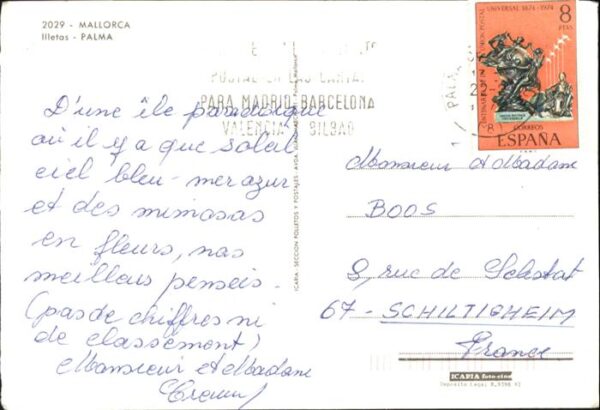 2029 - MALLORCA
Illetas - PALMA
POSTAL EN LAS CARTAS
PARA MADRID-BARCELONA
VALENCIA BILBAO
PALMA
22
UNIVERSAL 1874-1974
8
PTAS
CORREOS
ESPAÑA
D'une île paradisique
où il y a que soleil
ciel bleu - mer azur
et des mimosas
en fleurs, nos
meilleurs penseis.
(pas de chiffres ni
de classement)
Monsieur et Madame
Monsieur et Madame
BOOS
8, rue de Selestat
67 - SCHILTIGHEIM
France
ICARIA. SECCION FOLLETOS Y POSTALES
ICARIA foto-color
Deposito Legal B.